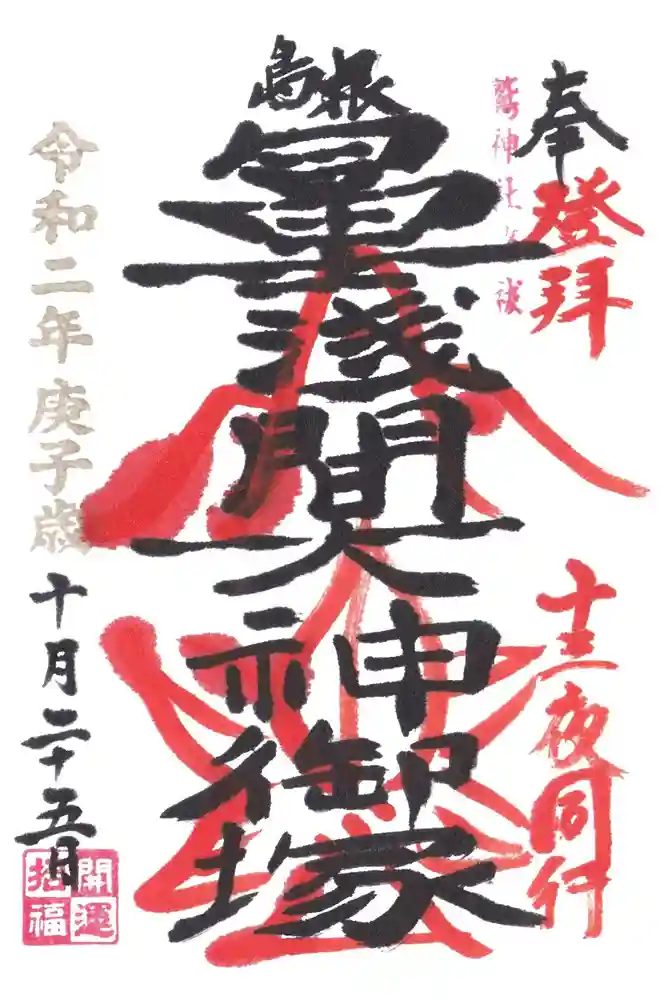 奉登拝
鷲神社
十三夜同行
島根
冨士淺間大神御塚
令和二年庚子歳
十月二十五日
開運
招福